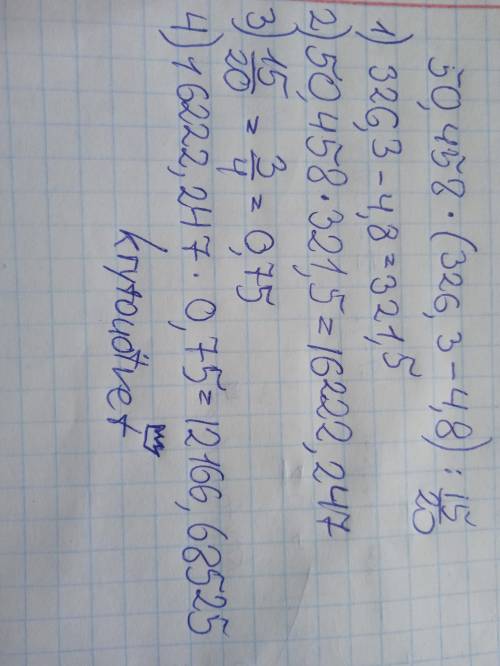 50,458 · (326,3 - 4,8) : 15/20
1) 326,3 - 4,8 = 321,5
2) 50,458 · 321,5 = 16222,247
3) 15/20 = 3/4 = 0,75
4) 16222,247 · 0,75 = 12166,68525
krytoiótvet